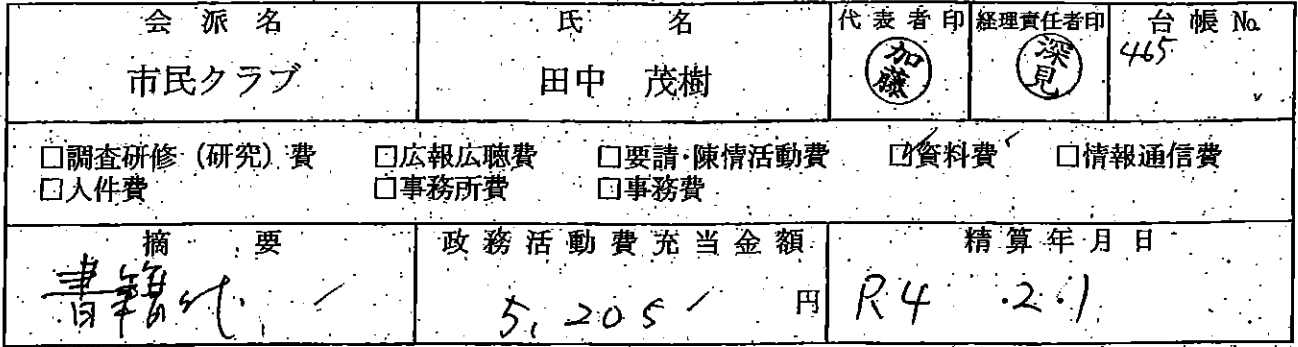 会派名 氏名 代表者印 経理責任者印 台帳No.
市民クラブ 田中 茂樹 加藤 深見 465
□調査研修（研究）費 □広報広聴費 □要請・陳情活動費 ☑資料費 □情報通信費
□人件費 □事務所費 □事務費
摘要 政務活動費充当金額 精算年月日
書籍代 5,205円 R4.2.1